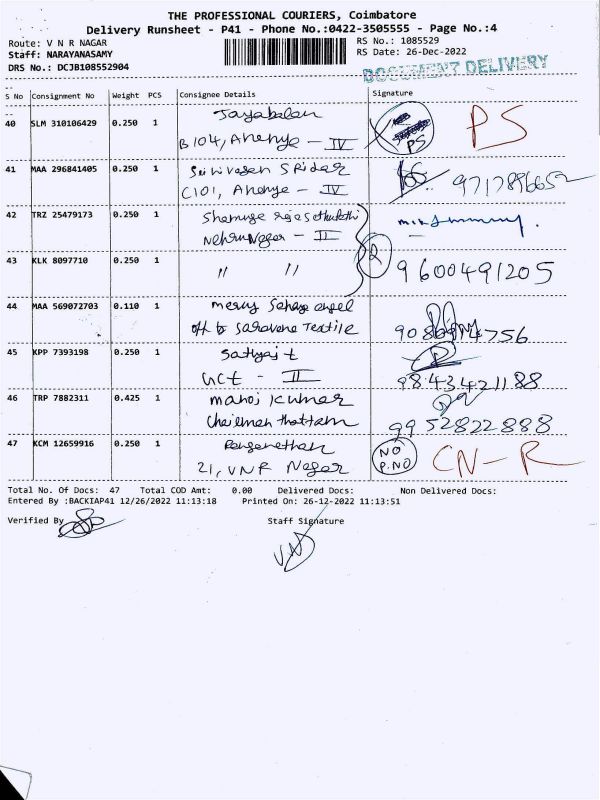 THE PROFESSIONAL COURIERS, Coimbatore
Delivery Runsheet - P41 - Phone No.:0422-3505555 - Page No.:4
Route: V N R NAGAR
RS No.: 1085529
Staff: NARAYANASAMY
RS Date: 26-Dec-2022
DRS No.: DCJB108552904
DOCUMENT DELIVERY
S No Consignment No Weight PCS Consignee Details Signature
40 SLM 310106429 0.250 1 Jayabalan
B 104, - IV PS PS
41 MAA 296841405 0.250 1 Srinivasan
C101, - IV 9717896652
42 TRZ 25479173 0.250 1
Nehru Nagar - II
43 KLK 8097710 0.250 1 " " 2 9600491205
44 MAA 569072703 0.110 1 Mercy
off to Textile 756
45 KPP 7393198 0.250 1
- II 9843421188
46 TRP 7882311 0.425 1 Manoj Kumar
Thottam 9952822888
47 KCM 12659916 0.250 1
21, VNR Nagar NO P.NO CN-R
Total No. Of Docs: 47 Total COD Amt: 0.00 Delivered Docs: Non Delivered Docs:
Entered By :BACKIAP41 12/26/2022 11:13:18 Printed On: 26-12-2022 11:13:51
Verified By Staff Signature